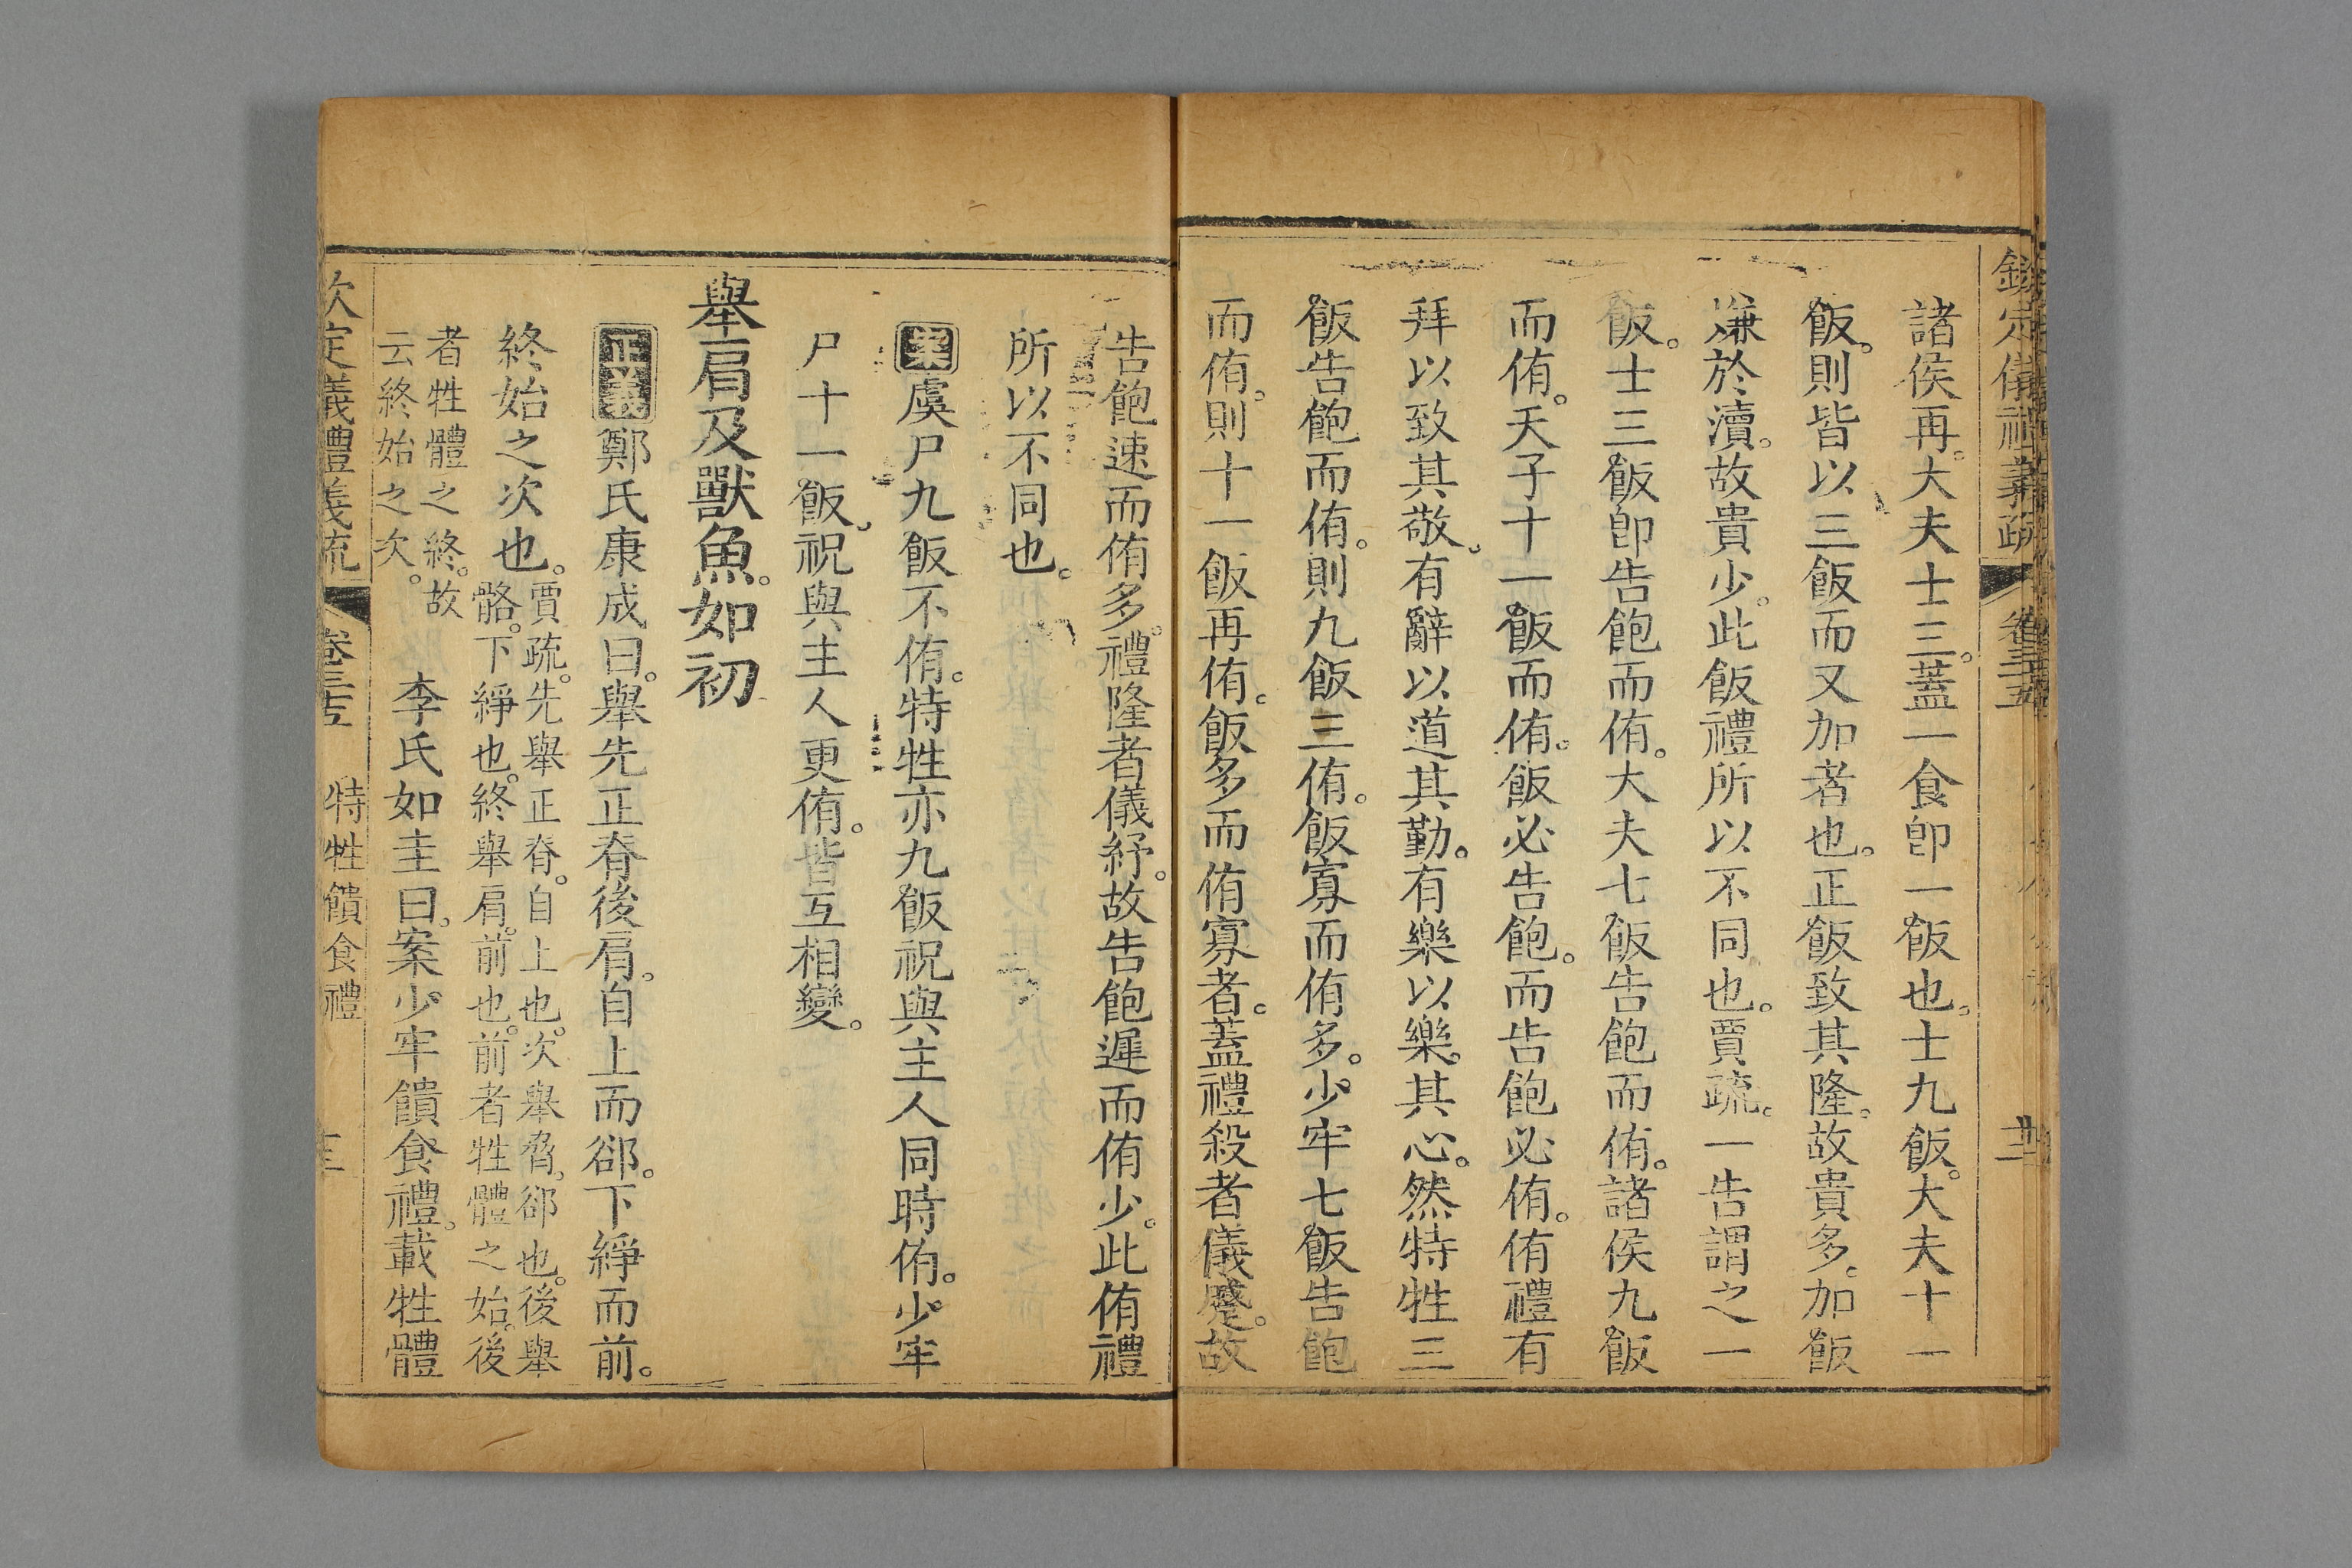 欽定儀禮義疏 卷三五
諸侯再。大夫士三。蓋一食卽一飯也。士九飯。大夫十一
飯。則皆以三飯而又加者也。正飯致其隆。故貴多。加飯
嫌於瀆。故貴少。此飯禮所以不同也。賈疏。一告謂之一
飯。士三飯卽告飽而侑。大夫七飯告飽而侑。諸侯九飯
而侑。天子十一飯而侑。飯必告飽。而告飽必侑。侑禮有
拜以致其敬。有辭以道其勤。有樂以樂其心。然特牲三
飯告飽而侑。則九飯三侑。飯寡而侑多。少牢七飯告飽
而侑。則十一飯再侑。飯多而侑寡者。蓋禮殺者儀蹙。故
告飽速而侑多。禮隆者儀紓。故告飽遲而侑少。此侑禮
所以不同也。
案虞尸九飯不侑。特牲亦九飯祝與主人同時侑。少牢
尸十一飯。祝與主人更侑。皆互相變。
舉肩及獸魚。如初
正義鄭氏康成曰。舉先正脊後肩。自上而郤。下綪而前。
終始之次也。賈疏。先舉正脊。自上也。次舉胳。郤也。後舉
骼。下綪也。終舉肩。前也。前者牲體之始。後
者牲體之終。故
云終始之次。
李氏如圭曰。案少牢饋食禮。載牲體
欽定儀禮義疏 卷三五 特牲饋食禮